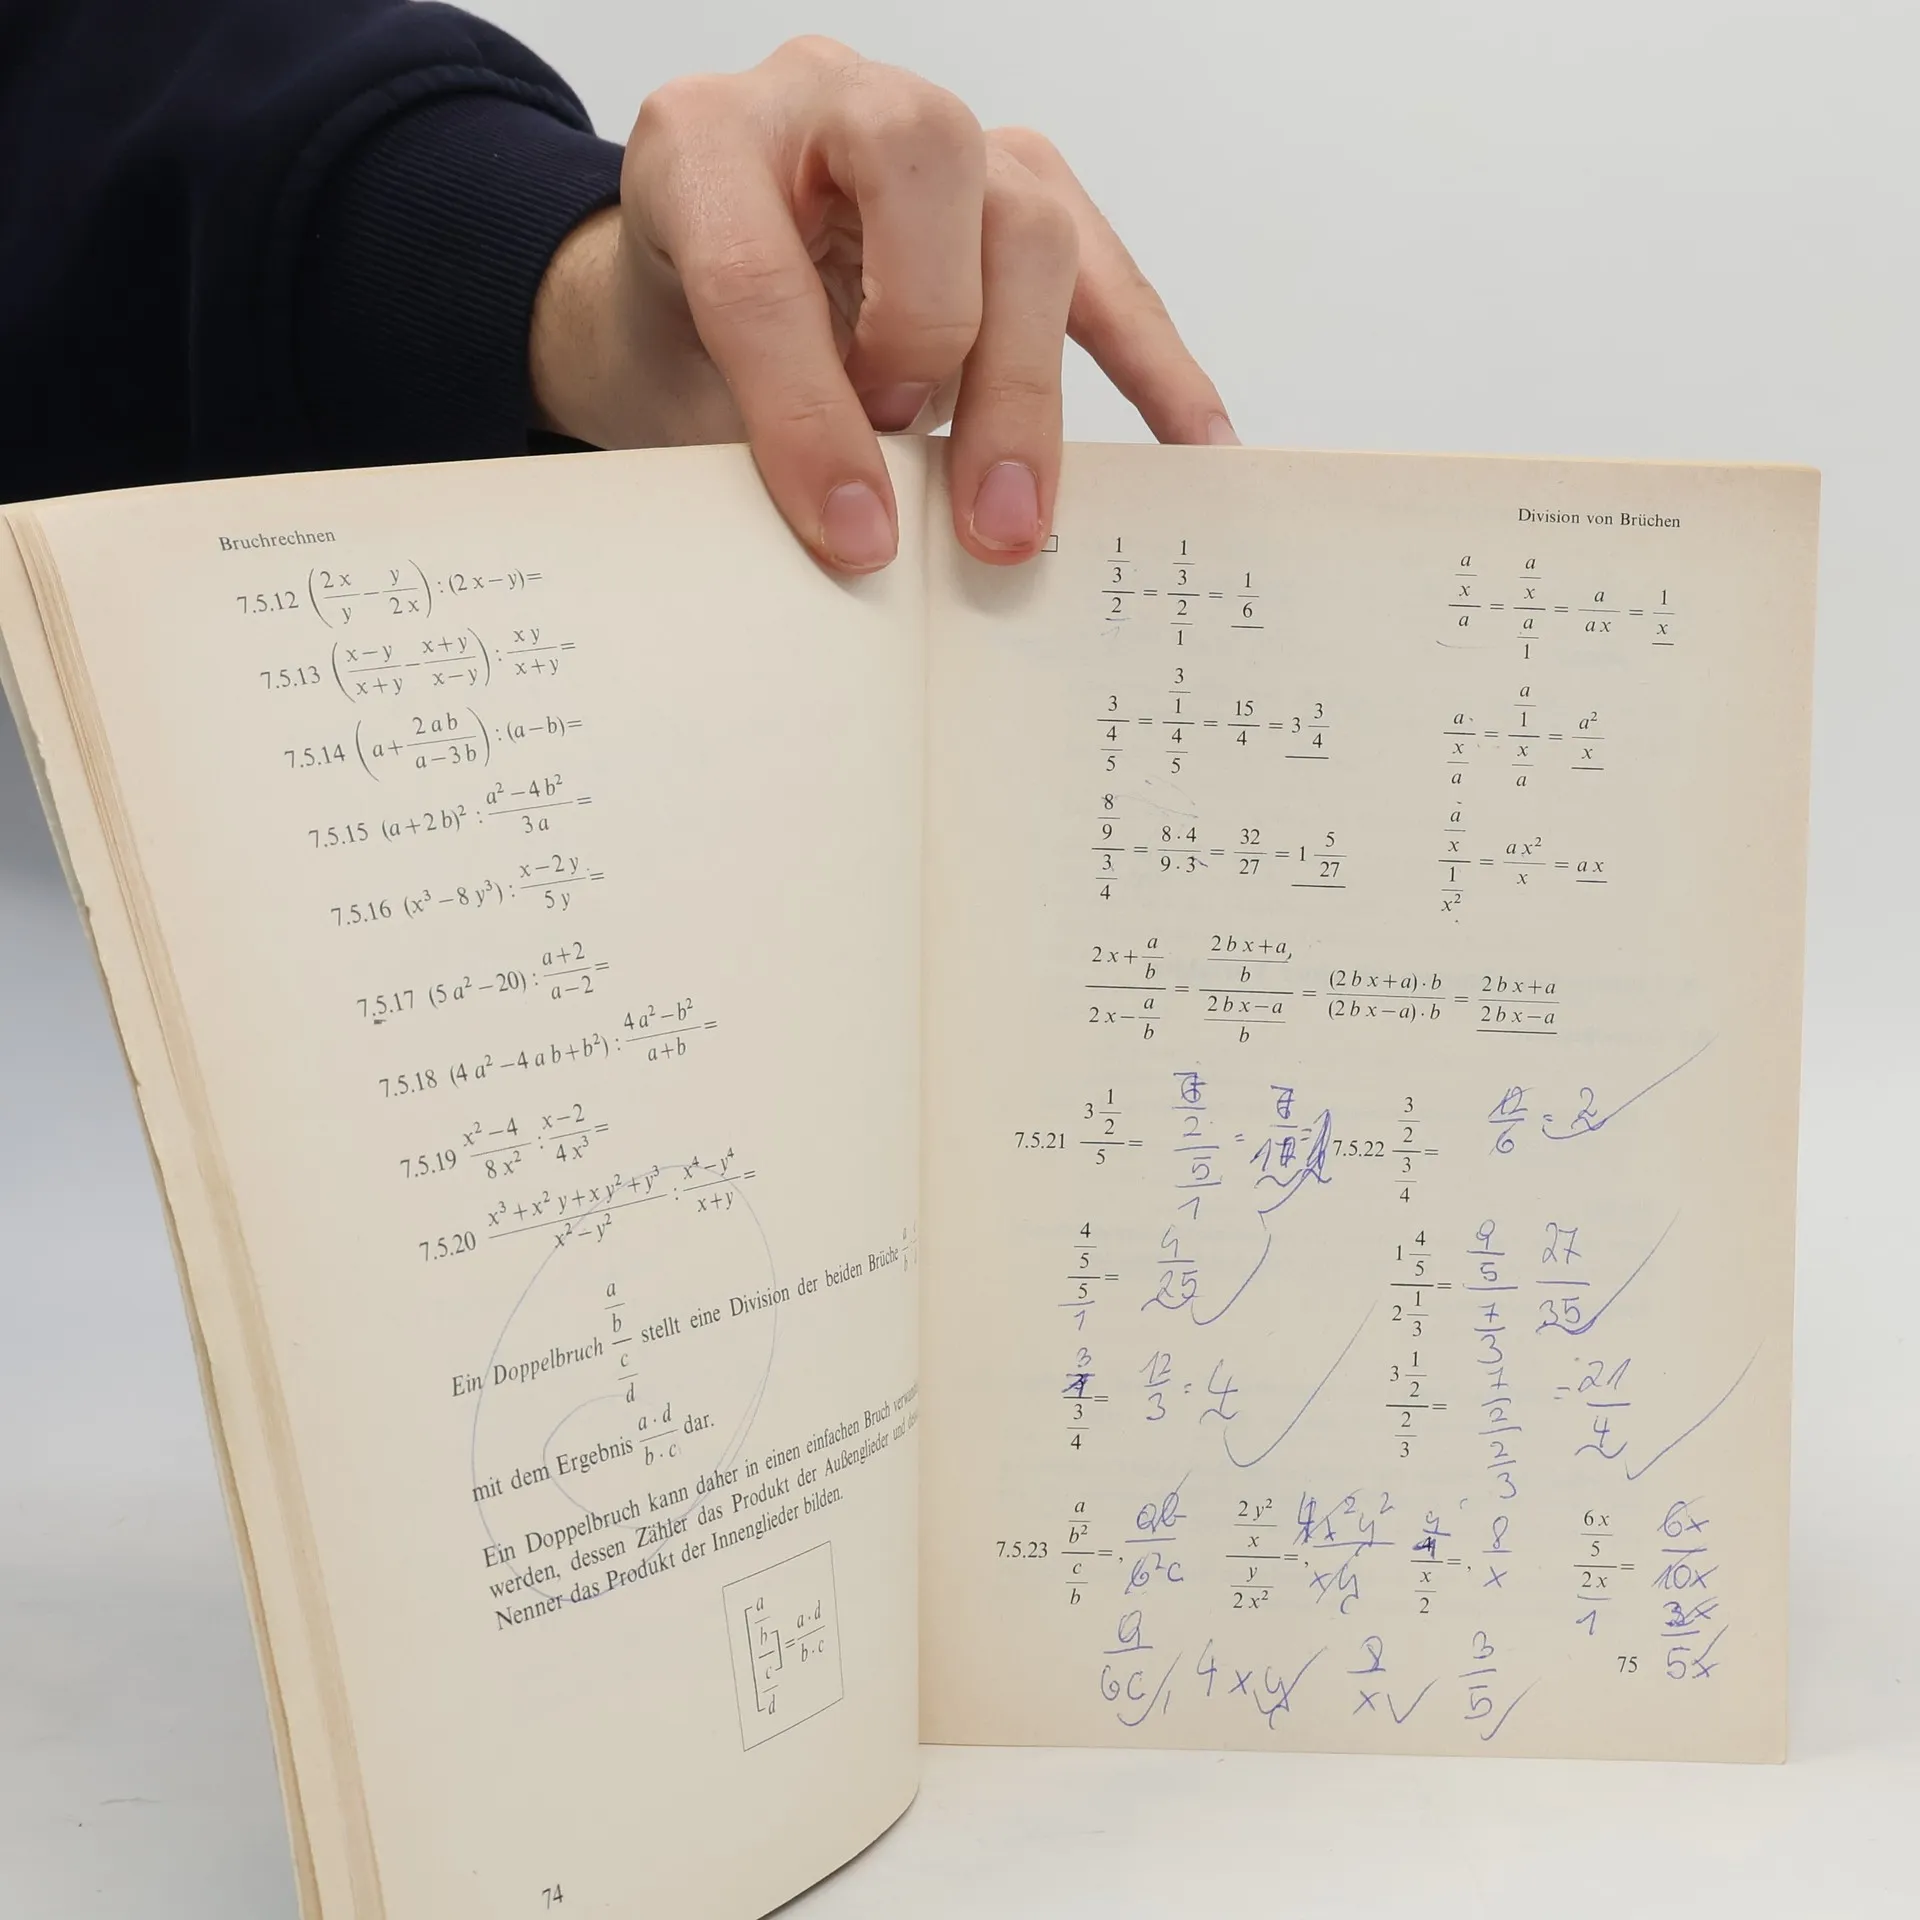 Bruchrechnen
7.5.12 (2x/y − y/2x) : (2x−y)=
7.5.13 ((x−y)/(x+y) − (x+y)/(x−y)) : xy/(x+y) =
7.5.14 (a + 2ab/(a−3b)) : (a−b)=
7.5.15 (a+2b)² : (a²−4b²)/3a =
7.5.16 (x³−8y³) : (x−2y)/5y =
7.5.17 (5a²−20) : (a+2)/(a−2) =
7.5.18 (4a²−4ab+b²) : (4a²−b²)/(a+b) =
7.5.19 (x²−4)/8x² : (x−2)/4x³ =
7.5.20 (x³+x²y+xy²+y³)/(x²−y²) : (x⁴−y⁴)/(x+y) =
Ein Doppelbruch (a/b)/(c/d) stellt eine Division der beiden Brüche
mit dem Ergebnis (a·d)/(b·c) dar.
Ein Doppelbruch kann daher in einen einfachen Bruch
werden, dessen Zähler das Produkt der Außenglieder und
Nenner das Produkt der Innenglieder bilden.
[(a/b)/(c/d)] = (a·d)/(b·c)
74
Division von Brüchen
(1/3)/2 = (1/3)/(2/1) = 1/6
(a/x)/a = (a/x)/(a/1) = a/ax = 1/x
3/(4/5) = (3/1)/(4/5) = 15/4 = 3 3/4
a/(x/a) = (a/1)/(x/a) = a²/x
(8/9)/(3/4) = (8·4)/(9·3) = 32/27 = 1 5/27
(a/x)/(1/x²) = ax²/x = ax
(2x+a/b)/(2x−a/b) = ((2bx+a)/b)/((2bx−a)/b) = ((2bx+a)·b)/((2bx−a)·b) = (2bx+a)/(2bx−a)
7.5.21 (3 1/2)/5 =
7.5.22 (3/2)/(3/4) = 12/6 = 2
(4/5)/(5/1) = 4/25
(1 4/5)/(2 1/3) = (9/5)/(7/3) 27/35
3/(3/4) = 12/3 = 4
(3 1/2)/(2/3) = (7/2)/(2/3) = 21/4
7.5.23 (a/b²)/(c/b) =, ab/b²c (2y²/x)/(y/2x²) =, 4x²y²/xy 4/(x/2) =, 8/x (6x/5)/(2x/1) = 6x/10x
3x/5x
a/bc, 4xy 8/x 3/5
75